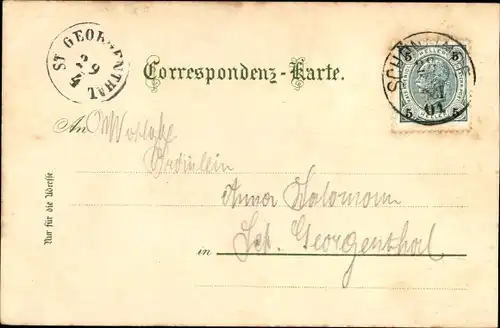 ST GEORGENTHAL
29
4
Correspondenz-Karte.
5 5
01
An
Fräulein
Anna Salomon
in St. Georgenthal
Nur für die Adresse